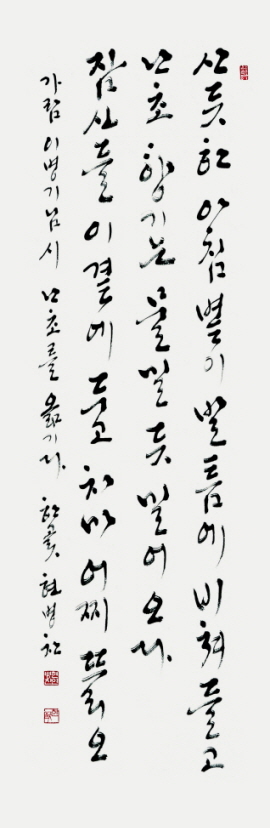 산듯한 아침 볕이 발 틈에 비쳐 들고
난초 향기는 물밀듯 밀어오다
잠신들 이 곁에 두고 차마 어찌 뜨리오
가람 이병기님 시 난초를 옮기다 한곬 현병찬